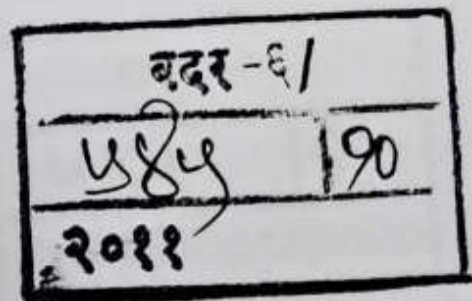 बदर-६/
५४५ | १०
२०११